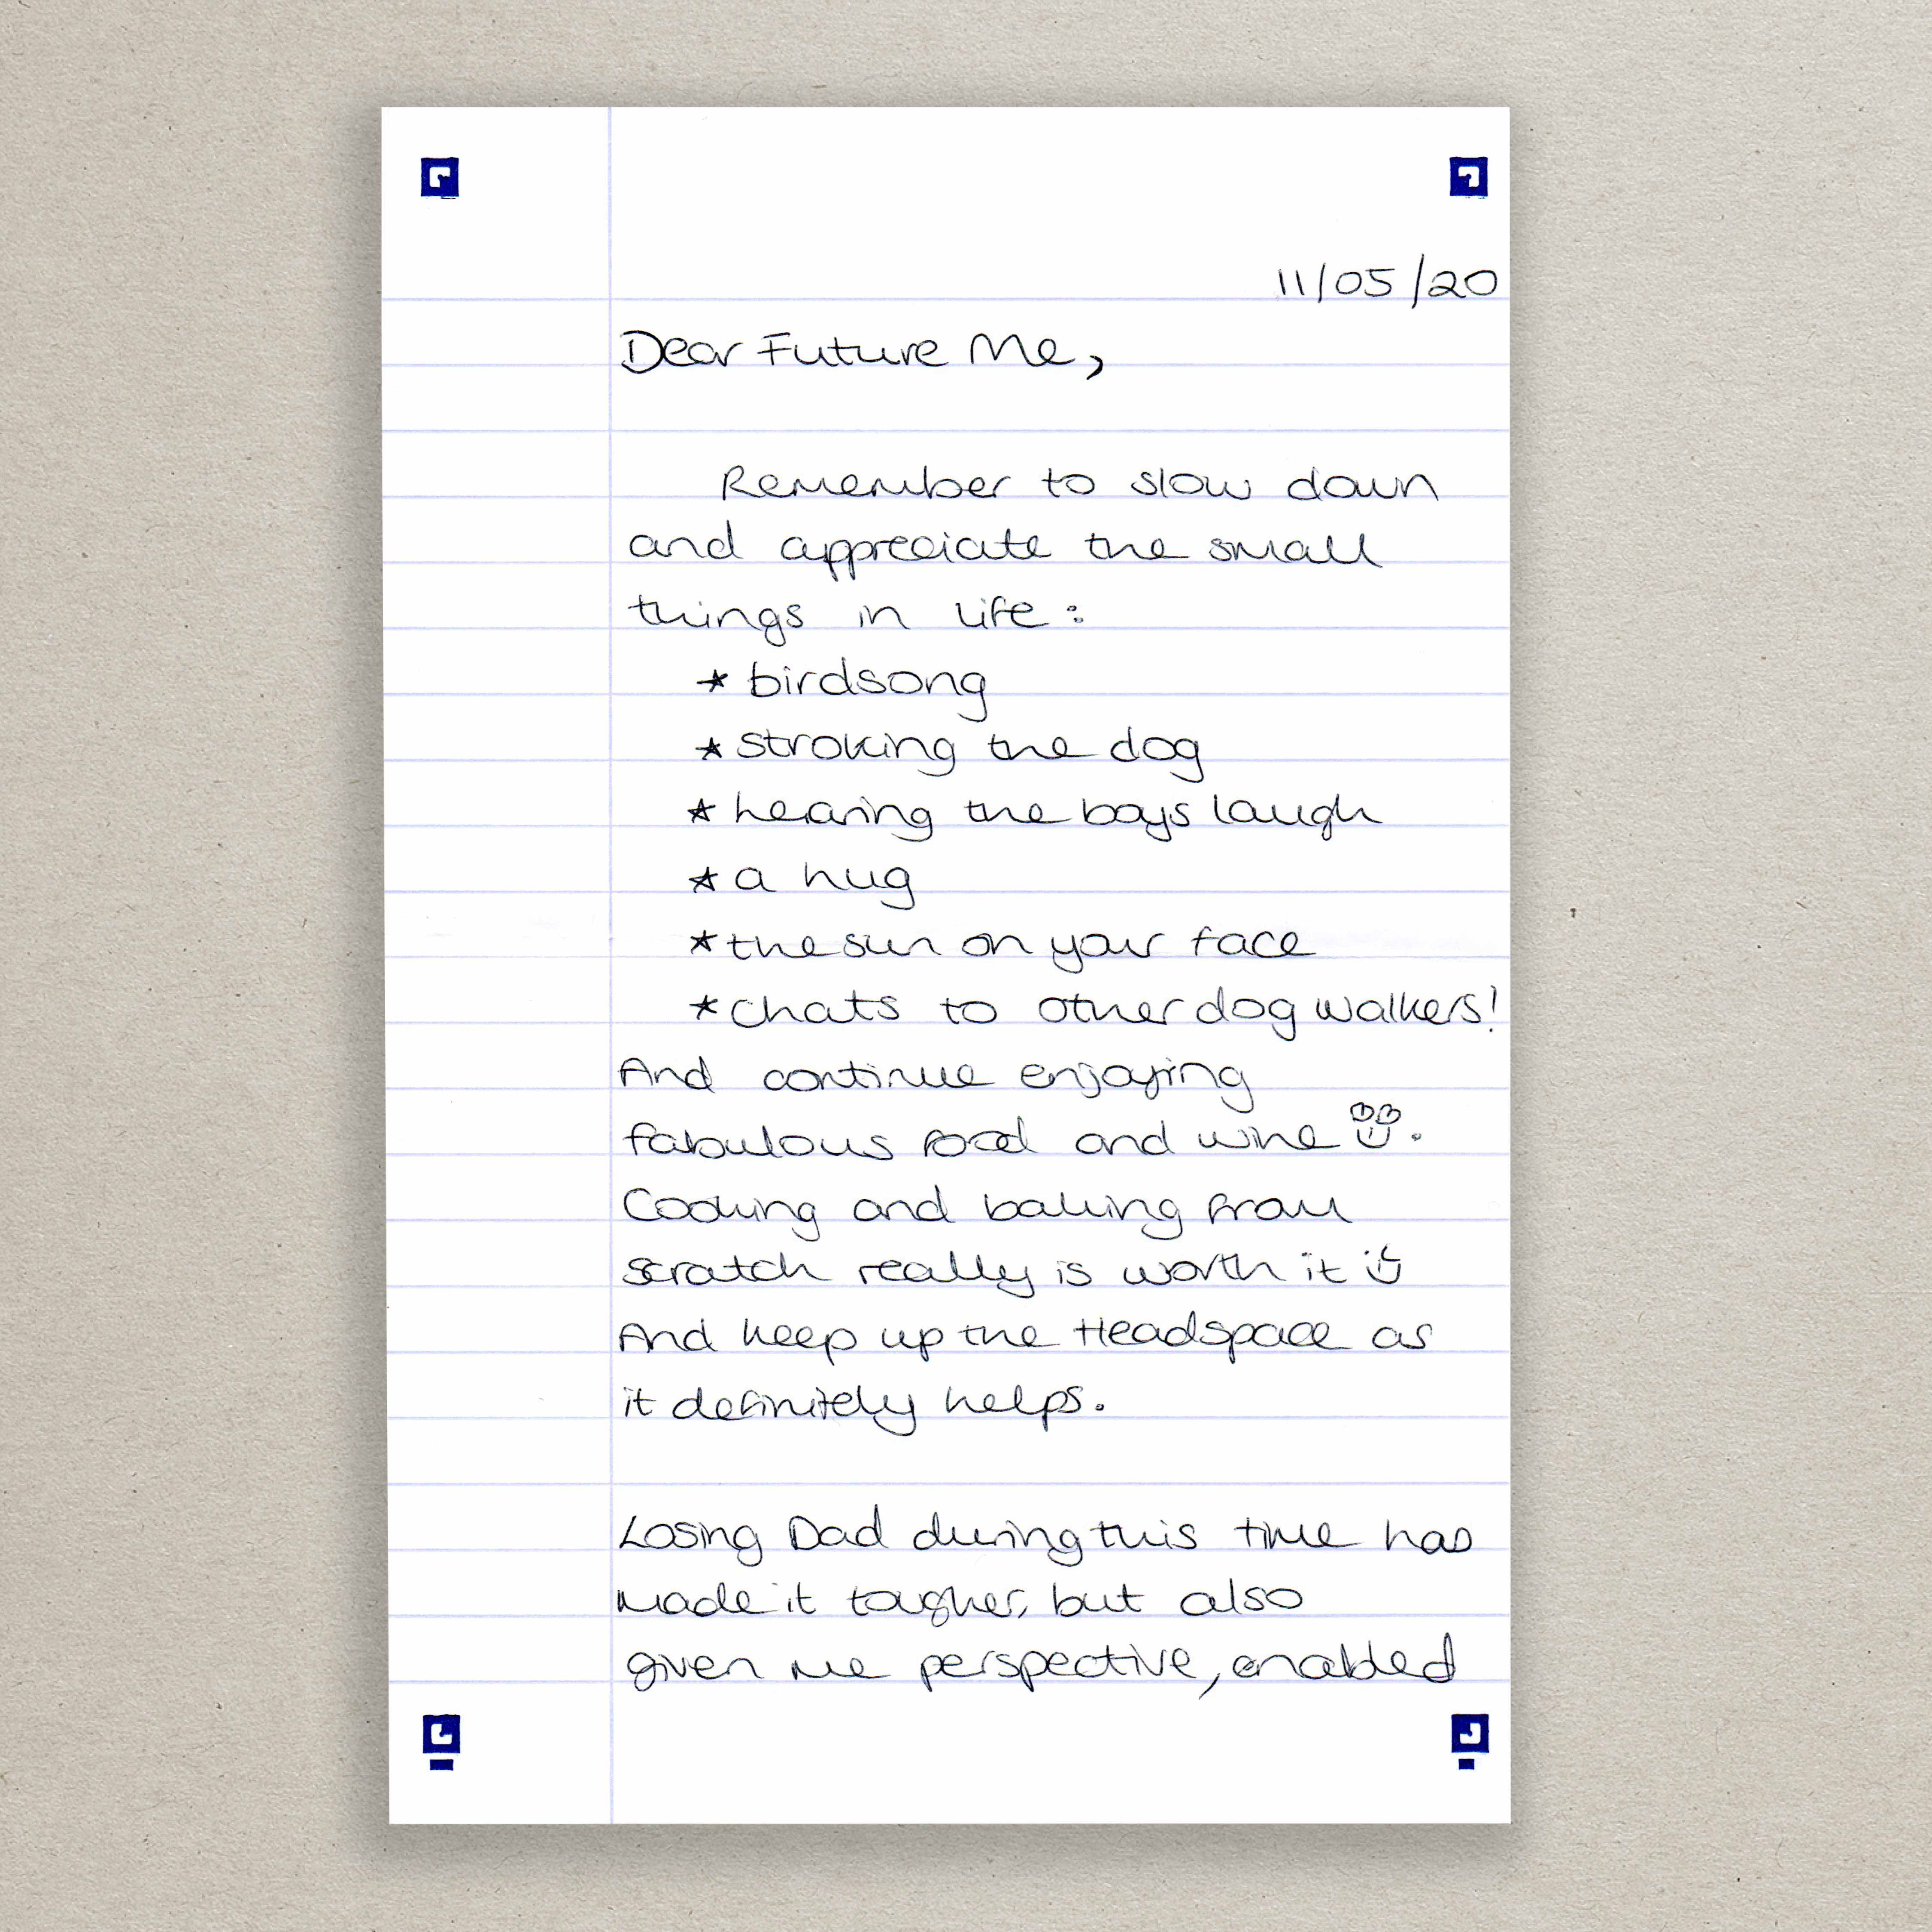 11/05/20
Dear Future Me,
Remember to slow down
and appreciate the small
things in life:
* birdsong
* stroking the dog
* hearing the boys laugh
* a hug
* the sun on your face
* chats to other dog walkers!
And continue enjoying
fabulous food and wine 😍.
Cooking and baking from
scratch really is worth it ☺
And keep up the Headspace as
it definitely helps.
Losing Dad during this time has
made it tougher, but also
given me perspective, enabled